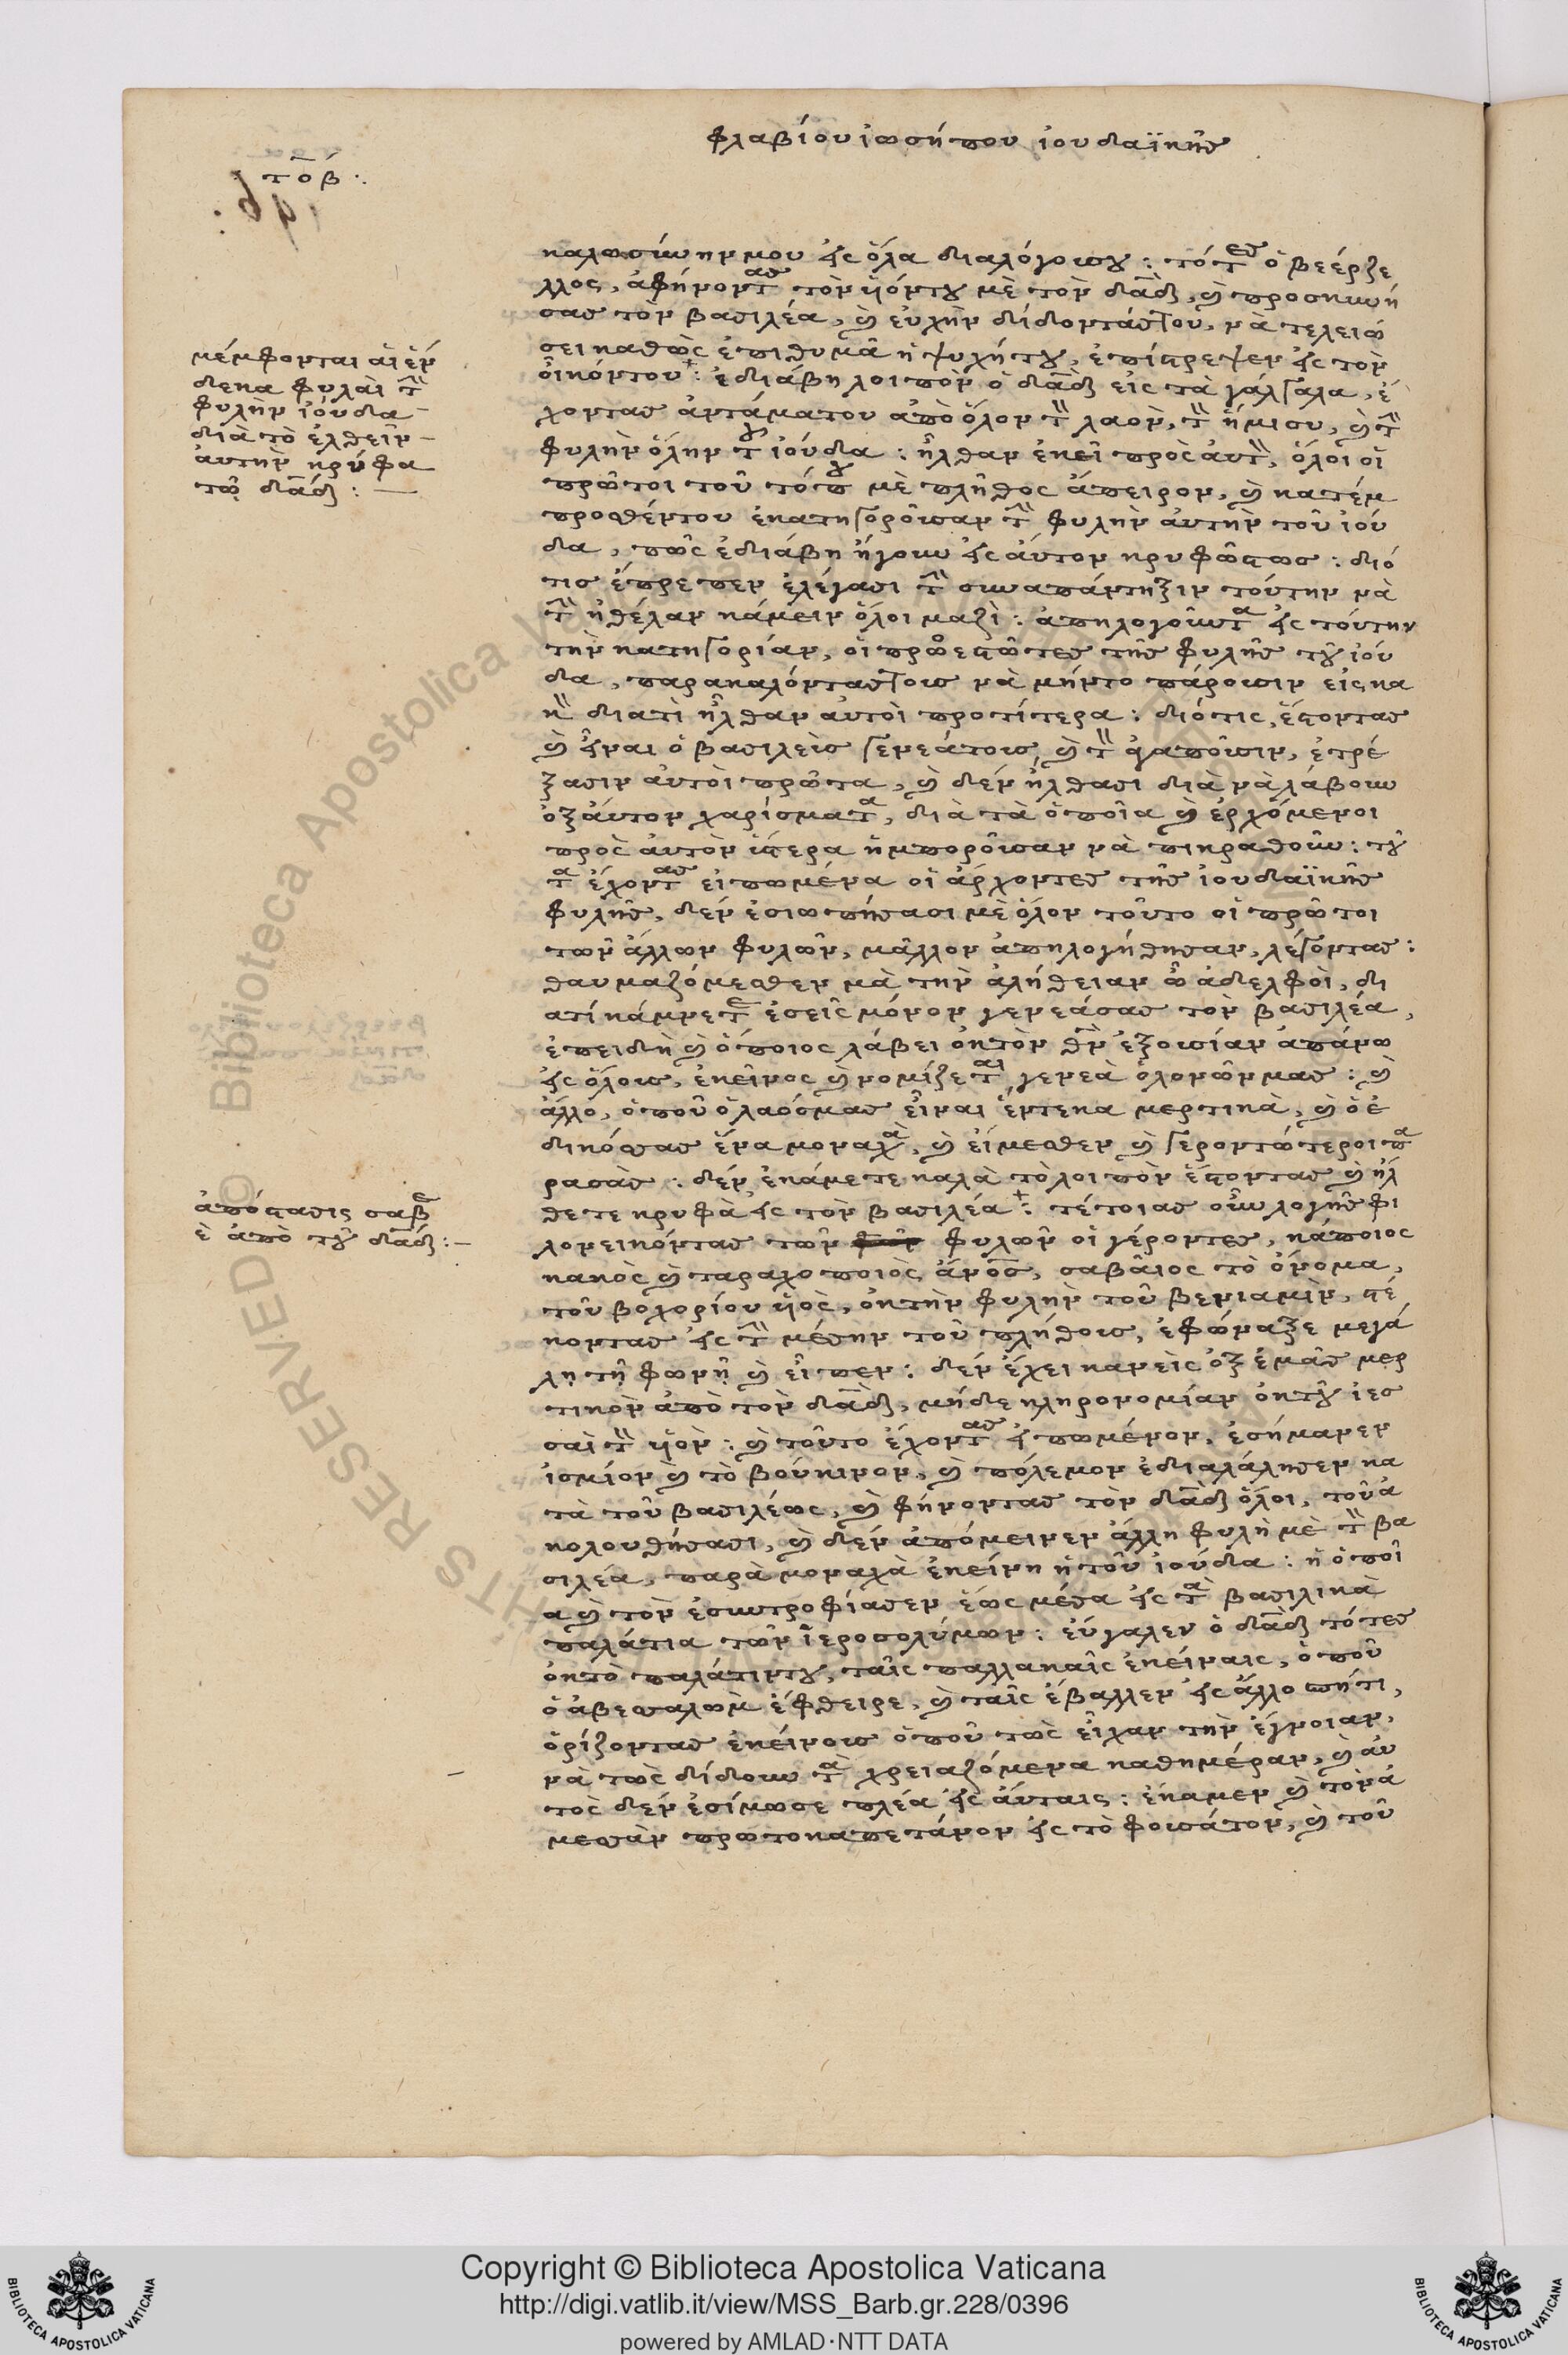 φλαβίου ἰωσήπου ἰουδαϊκῆς
τοβ ·.
καλωσύνην μου εἰς ὅλα διαλόγουσου : τότες ὁ βεέρζε
λλος, ἀφήνοντας τὸν ὑιόντου μὲ τὸν δαδ, καὶ προσκυνή
σας τὸν βασιλέα, καὶ εὐχὴν δίδοντάςτου, νὰ τελειώ
σει καθὼς ἐπιθυμᾶ ἡ ψυχήτου, ἐπίστρεψεν εἰς τὸν
οἶκόντου : ἐδιάβη λοιπὸν ὁ δαδ εἰς τὰ γάλγαλα, ἔ
χοντας ἀντάματου ἀπὸ ὅλον τὸν λαὸν, τὸ ἥμισυ, καὶ τὴν
φυλὴν ὅλην τοῦ ἰούδα : ἦλθαν ἐκεῖ πρὸς ἀυτὸν, ὅλοι οἱ
πρῶτοι τοῦ τόπου μὲ πλῆθος ἄπειρον, καὶ κατέμ
προσθέντου ἐκατηγορούσαν τὴν φυλὴν ἀυτὴν τοῦ ἰού
δα, πῶς ἐδιάβη ἤγουν εἰς ἀύτον κρυφῶς : διό
τις ἔπρεπεν ἐλέγασι τὴν συναπάντηξιν τούτην νὰ
τὴν ἠθέλαν κάμειν ὅλοι μαζὶ : ἀπηλογοῦντα εἰς τούτην
τὴν κατηγορίαν, οἱ προεστῶτες τῆς φυλῆς τοῦ ἰού
δα, παρακαλόντάςτους νὰ μήντο πάρουσιν εἰς κα
κὸν διατὶ ἦλθαν ἀυτοὶ προτίτερα : διότις, ἔστοντας
καὶ εἶναι ὁ βασιλεὺς γενεάτους, καὶ τὸν ἀγαποῦσιν, ἐτρέ
ξασιν ἀυτοὶ πρῶτα, καὶ δὲν ἤλθασι διὰ νὰ λάβουν
ὀξάυτον χαρίσματα, διὰ τὰ ὁποῖα καὶ ἐρχόμενοι
πρὸς ἀυτὸν ὕστερα ἠμποροῦσαν νὰ πικραθοῦν : τοῦ
τα ἔχοντας εἰπωμένα οἱ ἄρχοντες τῆς ἰουδαϊκῆς
φυλῆς, δὲν ἐσιωπήσασι μὲ ὅλον τοῦτο οἱ πρῶτοι
τῶν ἄλλων φυλῶν, μᾶλλον ἀπηλογήθησαν, λέγοντας :
θαυμαζόμεσθεν μὰ τὴν ἀλήθειαν ὦ ἀδελφοὶ, δι
ατί κάμνετε ἐσεῖς μόνον γενεάσας τὸν βασιλέα,
ἐπειδὴ καὶ ὁποιος λάβει ὀκτὸν θν ἐξουσίαν ἀπάνω
εἰς ὅλους, ἐκεῖνος καὶ νομίζεται γενεὰ ὁλονῶνμας : καὶ
ἄλλο, ὁποῦ ὁ λαόςμας εἶναι ἕντεκα μερτικὰ, καὶ ὁ ἐ
δικόσας ἕνα μοναχὰ, καὶ εἴμεσθεν καὶ γεροντώτεροι πα
ρασᾶς : δὲν ἐκάμετε καλὰ τὸ λοιπὸν ἔστοντας καὶ ἤλ
θετε κρυφὰ εἰς τὸν βασιλέα : τέτοιας οὖν λογῆς φι
λονεικόντας τῶν φυλῶν οἱ γέροντες, κάποιος
κακὸς καὶ ταραχοποιὸς ἄνος, σαβᾶιος τὸ ὄνομα,
τοῦ βοχορίου ὑιὸς, ὀκτὴν φυλὴν τοῦ βενιαμὶν, στέ
κοντας εἰς τὴν μέσην τοῦ πλήθους, ἐφώναξε μεγά
λῃ τῇ φωνῇ καὶ εἶπεν : δὲν ἔχει κανεὶς ὀξ ἐμᾶς μερ
τικὸν ἀπὸ τὸν δαδ, μήδε κληρονομίαν ὀκτοῦ ἰεσ
σαὶ τὸν ὑιὸν : καὶ τοῦτο ἔχοντας εἰπωμένον, ἐσήμανεν
ἰσμίον καὶ τὸ βούκινον, καὶ πόλεμον ἐδιαλάλησεν κα
τὰ τοῦ βασιλέως, καὶ φήνοντας τὸν δαδ ὅλοι, τοῦ ἀ
κολουθήσασι, καὶ δὲν ἀπόμεινεν ἄλλη φυλὴ μὲ τὸν βα
σιλέα, παρὰ μοναχὰ ἐκείνη ἡ τοῦ ἰούδα : ἡ ὁποῖ
α καὶ τὸν ἐσυντροφίασεν ἕως μέσα εἰς τὰ βασιλικὰ
παλάτια τῶν ἱεροσολύμων : εὔγαλεν ὁ δαδ τότες
ὀκτὸ παλάτιντου, ταῖς παλλακαῖς ἐκείναις, ὁποῦ
ὁ ἀβεσαλὼμ ἔφθειρε, καὶ ταῖς ἔβαλλεν εἰς ἄλλο σπήτι,
ὁρίζοντας ἐκείνους ὁποῦ τῶς εἶχαν τὴν ἔγνοιαν,
νὰ τῶς δίδουν τὰ χρειαζόμενα καθημέραν, καὶ ἀυ
τὸς δὲν ἐσίμωσε πλέα εἰς ἀύταις : ἔκαμεν καὶ τὸν ἀ
μεσὰν πρωτοκαπετάνον εἰς τὸ φουσάτον, καὶ τοῦ
μέμφονται ἁι ἕν
δεκα φυλὰι τὴν
φυλὴν ἰούδα
διὰ τὸ ἐλθεῖν
ἀυτὴν κρύφα
τῶ δαδ : —
ἀπόστασις σαβ
ὲ ἀπὸ τοῦ δαδ : —
Copyright © Biblioteca Apostolica Vaticana
http://digi.vatlib.it/view/MSS_Barb.gr.228/0396
powered by AMLAD·NTT DATA
BIBLIOTECA APOSTOLICA VATICANA
BIBLIOTECA APOSTOLICA VATICANA